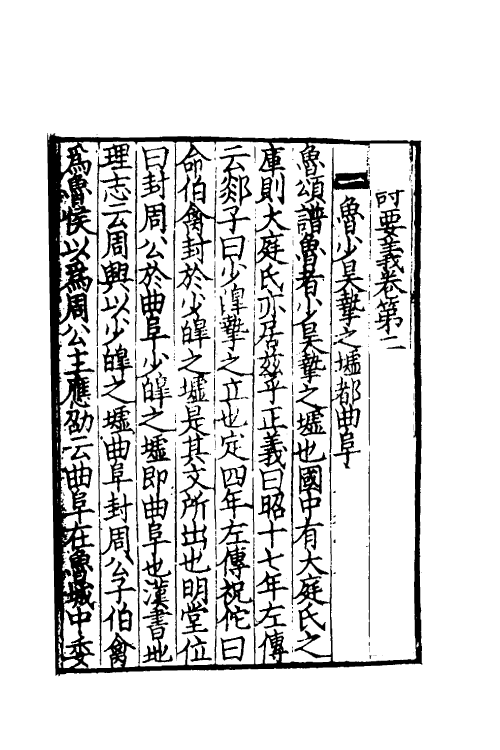 詩要義卷第二
一 魯少昊摯之墟都曲阜
魯頌譜魯者少昊摯之墟也國中有大庭氏之
庫則大庭氏亦居茲乎正義曰昭十七年左傳
云郯子曰少皥摯之立也定四年左傳祝佗曰
命伯禽封於少皥之墟是其文所出也明堂位
曰封周公於曲阜少皥之墟即曲阜也漢書地
理志云周興以少皥之墟曲阜封周公子伯禽
爲魯侯以爲周公主應劭云曲阜在魯城中委